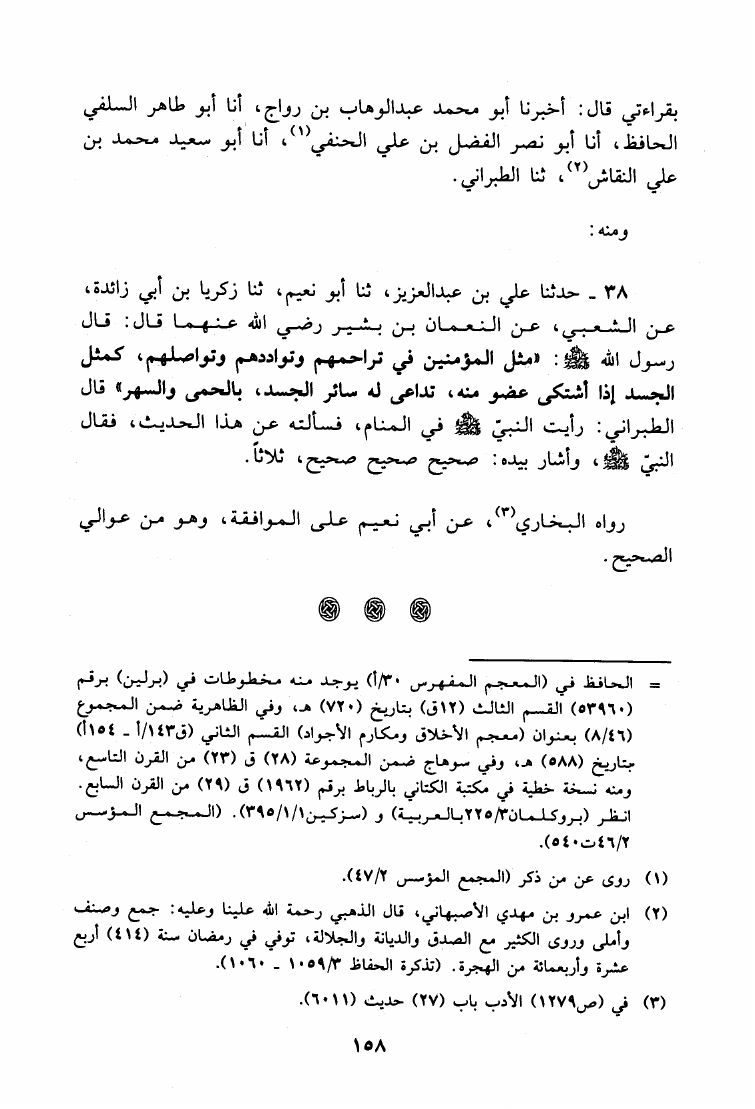 بقراءتي قال: أخبرنا أبو محمد عبدالوهاب بن رواج، أنا أبو طاهر السلفي
الحافظ، أنا أبو نصر الفضل بن علي الحنفي(١)، أنا أبو سعيد محمد بن
علي النقاش(٢)، ثنا الطبراني.
ومنه:
٣٨ ـ حدثنا علي بن عبدالعزيز، ثنا أبو نعيم، ثنا زكريا بن أبي زائدة،
عن الشعبي، عن النعمان بن بشير رضي الله عنهما قال: قال
رسول الله ﷺ: «مثل المؤمنين في تراحمهم وتواددهم وتواصلهم، كمثل
الجسد إذا أشتكى عضو منه، تداعى له سائر الجسد، بالحمى والسهر» قال
الطبراني: رأيت النبيّ ﷺ في المنام، فسألته عن هذا الحديث، فقال
النبيّ ﷺ، وأشار بيده: صحيح صحيح صحيح، ثلاثاً.
رواه البخاري(٣)، عن أبي نعيم على الموافقة، وهو من عوالي
الصحيح.
= الحافظ في (المعجم المفهرس ٣٠/أ) يوجد منه مخطوطات في (برلين) برقم
(٥٣٩٦٠) القسم الثالث (١٢ق) بتاريخ (٧٢٠) هـ، وفي الظاهرية ضمن المجموع
(٨/٤٦) بعنوان (معجم الأخلاق ومكارم الأجواد) القسم الثاني (ق١٤٣/أ ـ ١٥٤أ)
بتاريخ (٥٨٨) هـ، وفي سوهاج ضمن المجموعة (٢٨) ق (٢٣) من القرن التاسع،
ومنه نسخة خطية في مكتبة الكتاني بالرباط برقم (١٩٦٢) ق (٢٩) من القرن السابع.
انظر (بروكلمان٢٢٥/٣بالعربية) و (سزكين٣٩٥/١/١). (المجمع المؤسس
٤٦/٢ت٥٤٠).
(١) روى عن من ذكر (المجمع المؤسس ٤٧/٢).
(٢) ابن عمرو بن مهدي الأصبهاني، قال الذهبي رحمة الله علينا وعليه: جمع وصنف
وأملى وروى الكثير مع الصدق والديانة والجلالة، توفي في رمضان سنة (٤١٤) أربع
عشرة وأربعمائة من الهجرة. (تذكرة الحفاظ ١٠٥٩/٣ ـ ١٠٦٠).
(٣) في (ص١٢٧٩) الأدب باب (٢٧) حديث (٦٠١١).
١٥٨